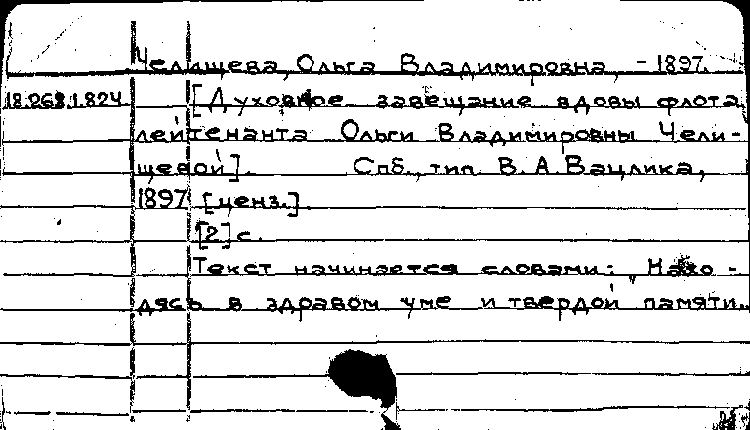 Челищева, Ольга Владимировна, - 1897.
18.268.1.824 [Духовное завещание вдовы флота
лейтенанта Ольги Владимировны Чели-
щевой]. Спб., тип. В. А. Вацлика,
1897 [ценз.].
[2] с.
Текст начинается словами: "Нахо-
дясь в здравом уме и твердой памяти...